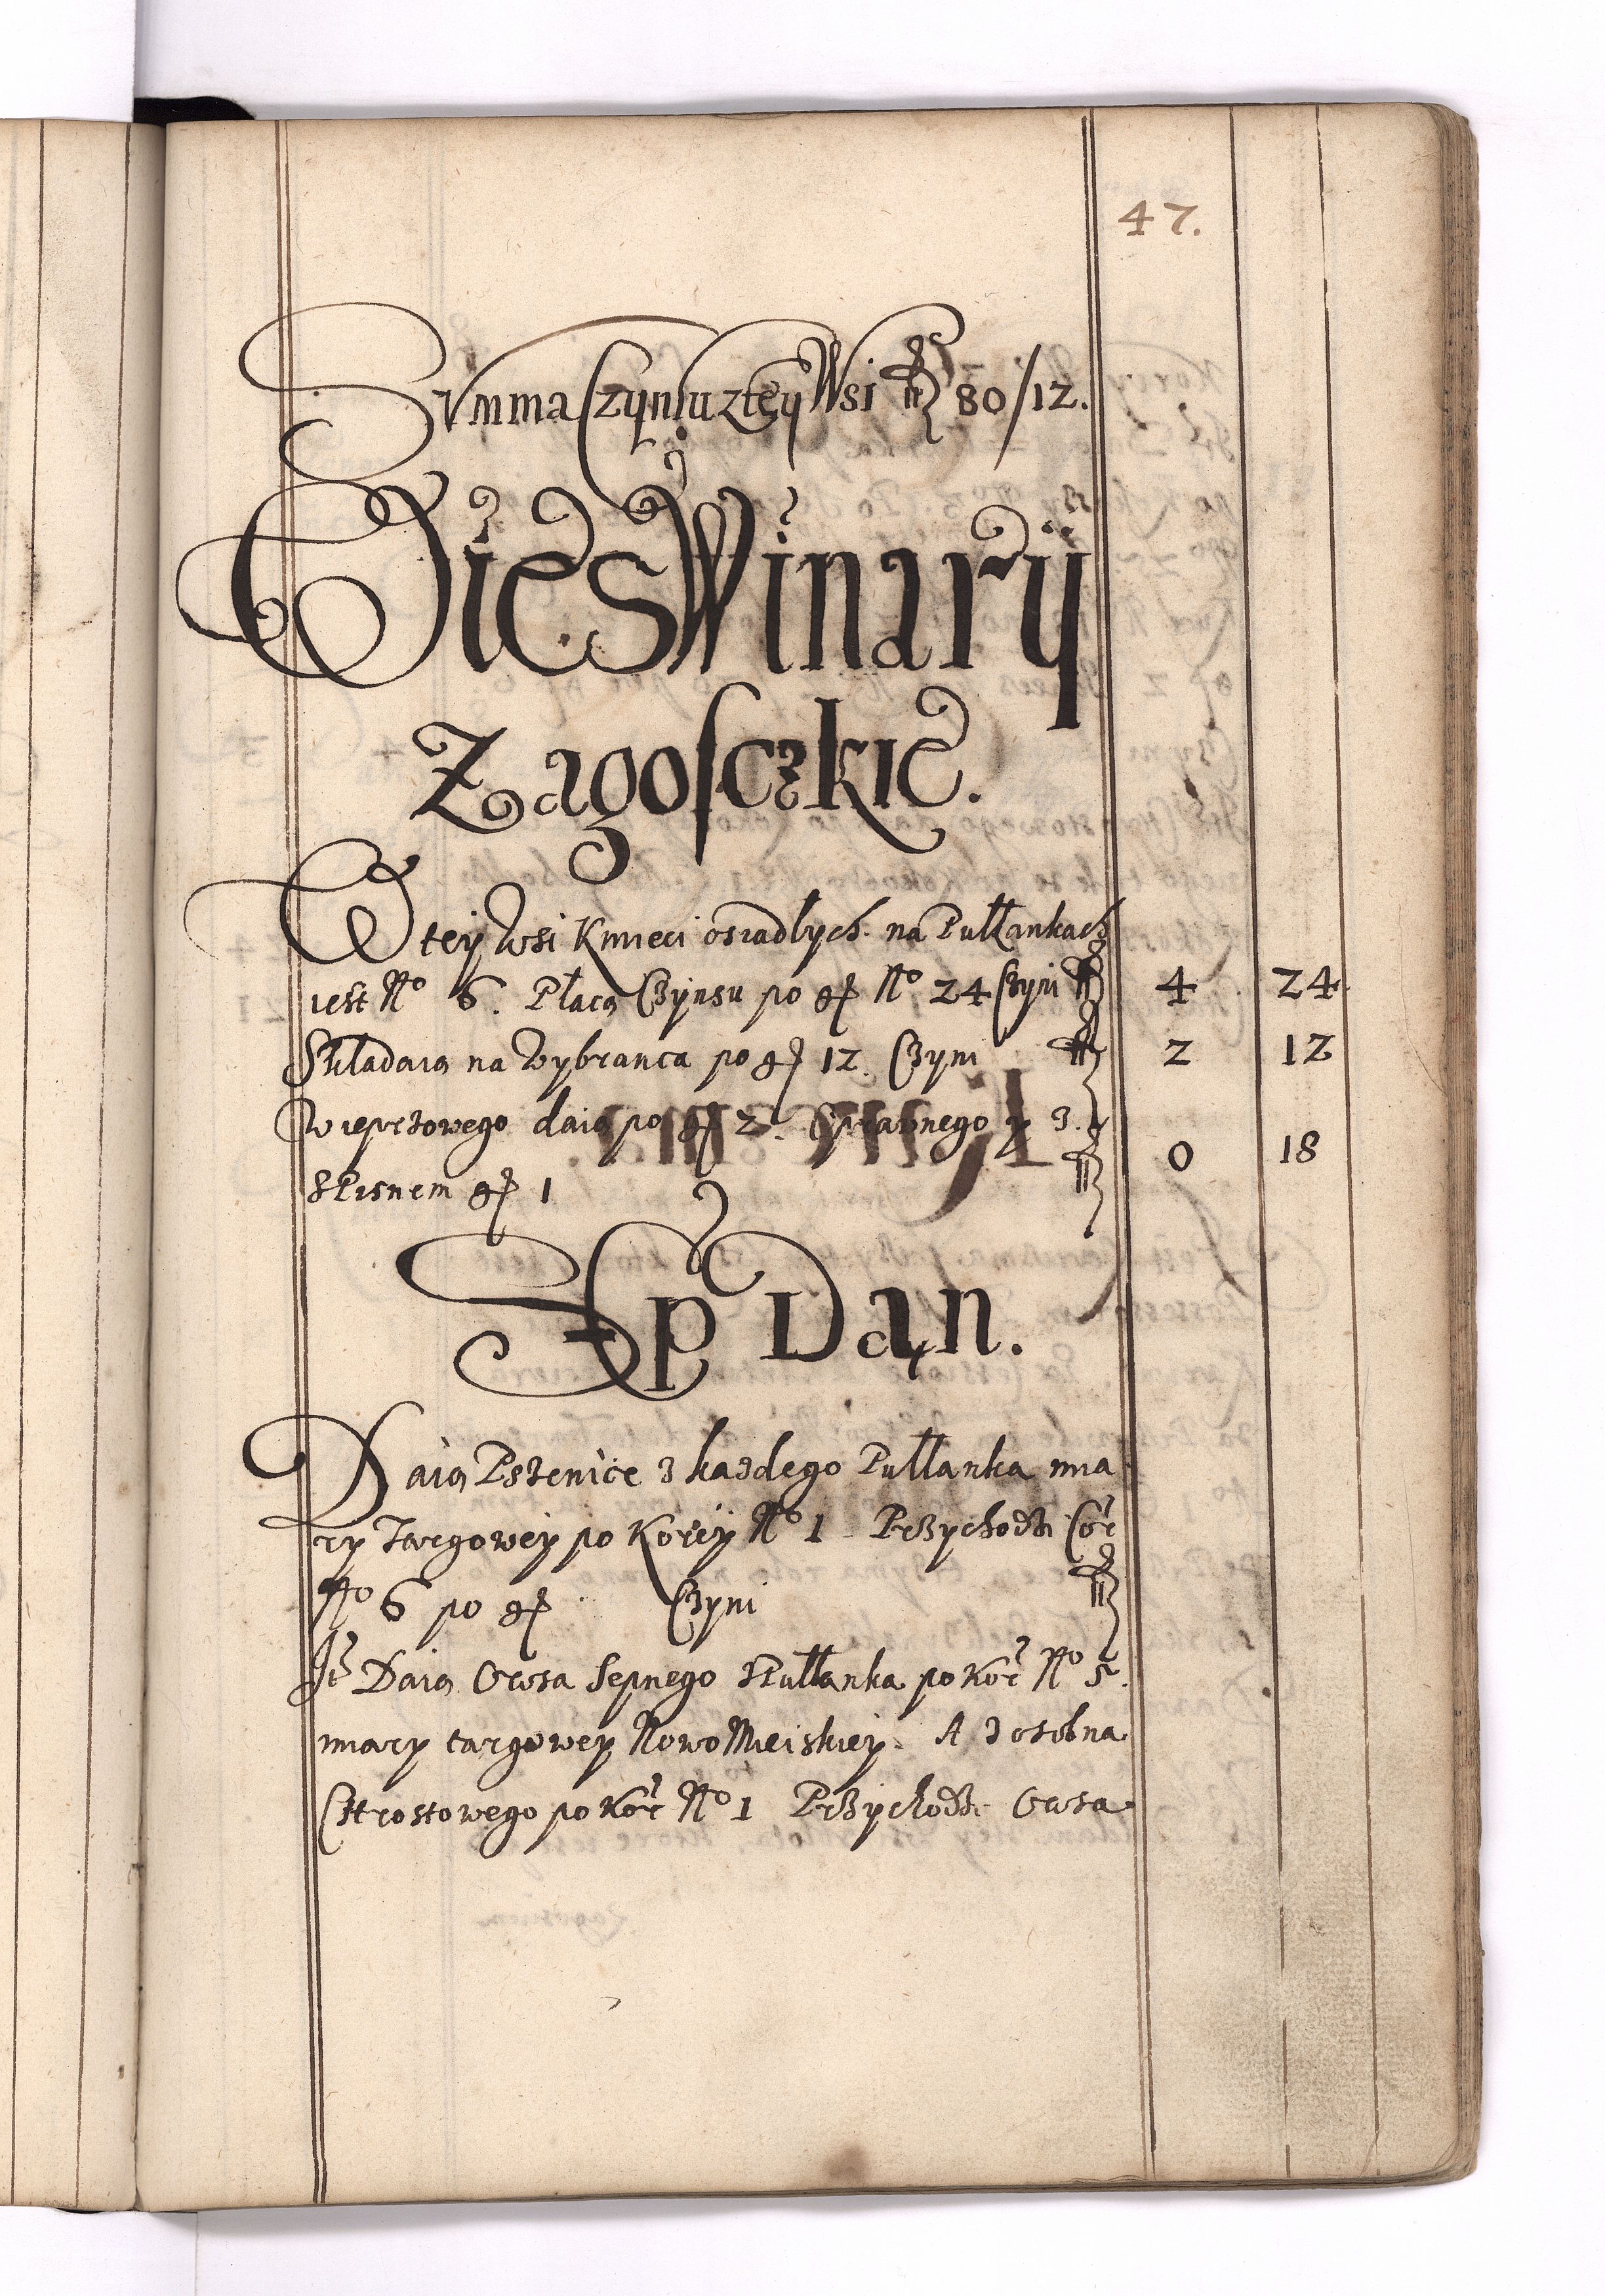 47.
Summa Czynszu z tey Wsi fl 80/12.
Wies Winary
Zagosczkie.
W tey Wsi Kmieci osiadłych na Pułłankach
iest No 6. Płacą Czynsu po gr No 24 Czyni fl 4 24
Składaią na Wybranca po gr 12. Czyni fl 2 12
Wieprzowego daią po gr 2. Sprawnego y z
Spisnem gr 1 fl 0 18
Sęp Dan.
Daią Pszenice z każdego Pułłanka mia
ry Targowey po Korcy No 1 Przychodzi Cor
No 6 po gr Czyni fl
It Daią Owsa Sepnego z Pułłanka po Kor No 5.
miary targowey Nowo Mieiskiey. A z osobna
Strostowego po Kor No 1 Przychodzi Owsa